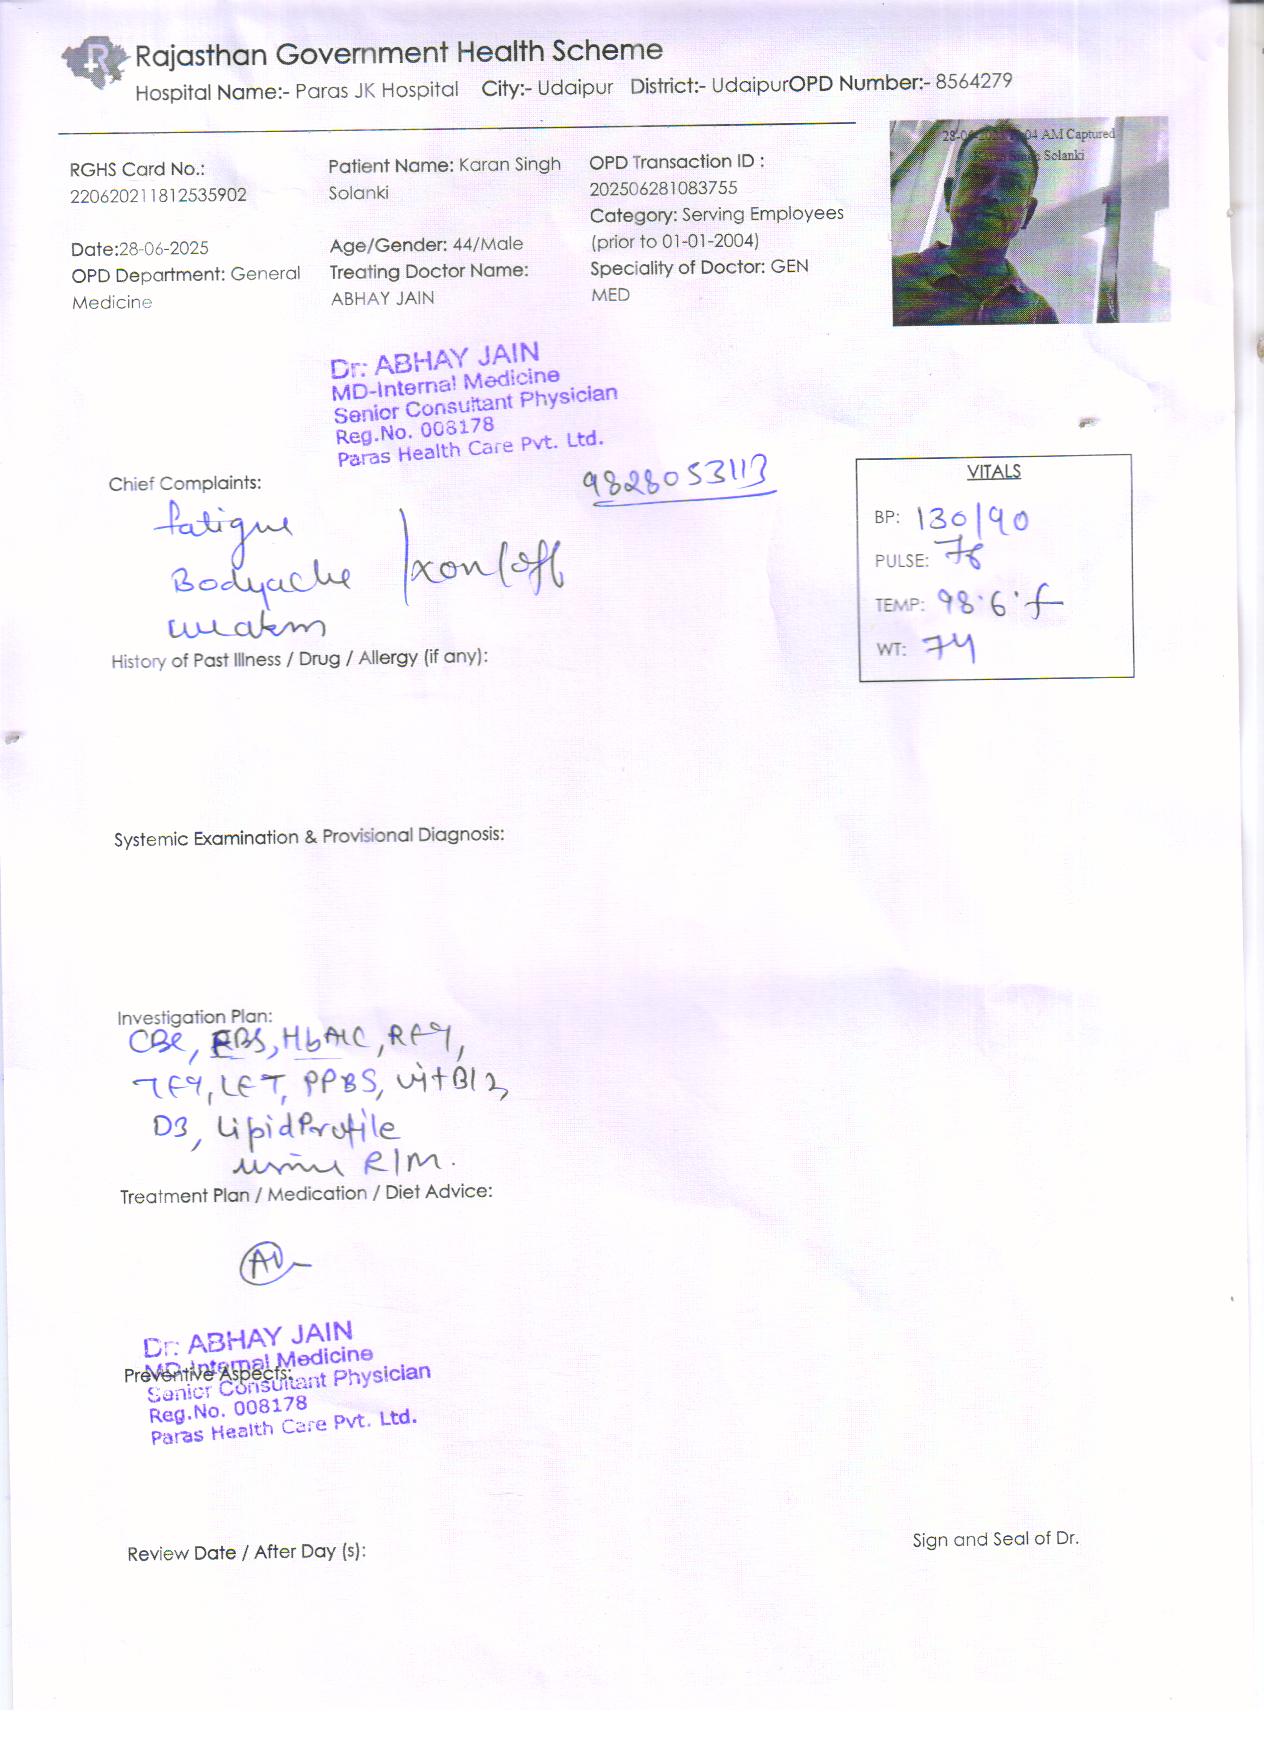 Rajasthan Government Health Scheme
Hospital Name:- Paras JK Hospital City:- Udaipur District:- UdaipurOPD Number:- 8564279
RGHS Card No.:
220620211812535902
Patient Name: Karan Singh
Solanki
OPD Transaction ID :
202506281083755
Category: Serving Employees
(prior to 01-01-2004)
Date:28-06-2025
Age/Gender: 44/Male
OPD Department: General
Medicine
Treating Doctor Name:
ABHAY JAIN
Speciality of Doctor: GEN
MED
04 AM Captured
Solanki
Dr: ABHAY JAIN
MD-Internal Medicine
Senior Consultant Physician
Reg.No. 008178
Paras Health Care Pvt. Ltd.
Chief Complaints:
9828053113
fatigue
Bodyache
on/off
History of Past Illness / Drug / Allergy (if any):
VITALS
BP: 130/90
PULSE: 76
TEMP: 98.6°f
WT: 74
Systemic Examination & Provisional Diagnosis:
Investigation Plan:
CBC, RBS, HbA1C, RFT,
TFT, LFT, PPBS, Vit B12,
D3, Lipid Profile
urine R/M.
Treatment Plan / Medication / Diet Advice:
Dr: ABHAY JAIN
MD-Internal Medicine
Preventive Aspects:
Senior Consultant Physician
Reg.No. 008178
Paras Health Care Pvt. Ltd.
Review Date / After Day (s):
Sign and Seal of Dr.